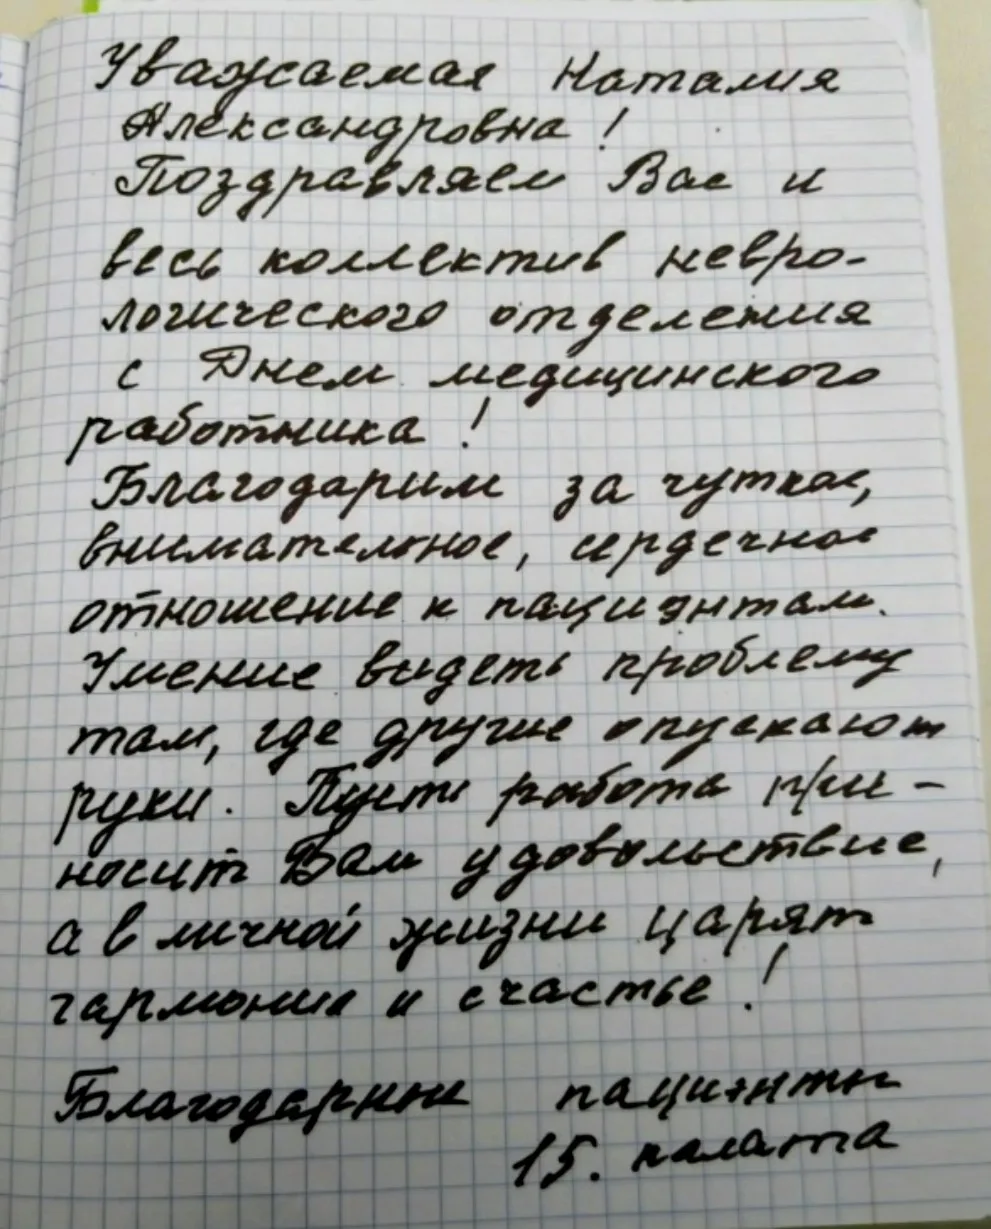 Уважаемая Наталия
Александровна!
Поздравляем Вас и
весь коллектив невро-
логического отделения
с Днем медицинского
работника!
Благодарим за чуткое,
внимательное, сердечное
отношение к пациэнтам.
Умение видеть проблему
там, где другие опускают
руки. Пусть работа при-
носит Вам удовольствие,
а в личной жизни царят
гармония и счастье!
Благодарные пациэнты
15. палата